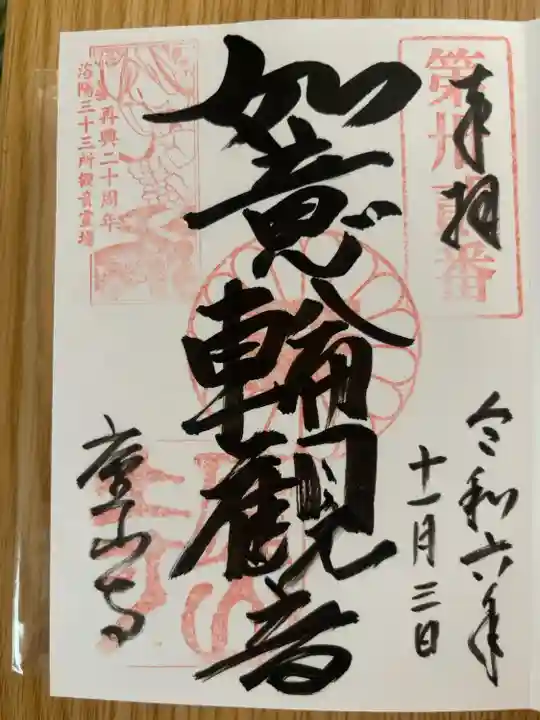 奉拝
令和六年
十一月三日
如意輪観音
廬山寺
再興二十周年
洛陽三十三所観音霊場